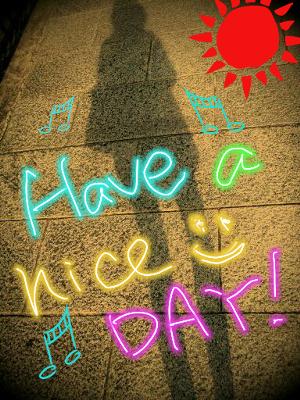 Have a
nice
DAY!